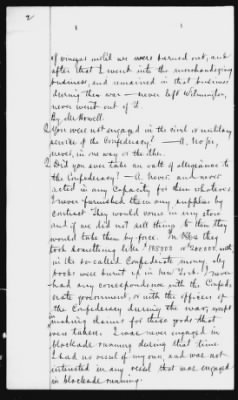 2
of vinegar until we were burned out, and
after that I went into the merchandising
business, and remained in that business
during the war — never left Wilmington,
never went out of it.
By Mr Howell.
Q. You were not engaged in the civil or military
service of the Confederacy? — A. Nope,
never, in one way or the other.
Q. Did you ever take an oath of allegiance to
the Confederacy? — A. Never and never
acted in any capacity for them whatever.
I never furnished them any supplies by
contract. They would come in my store
and if we did not sell things to them they
would take them by force. In they
took something like $185000 or $200000 with
in its so-called Confederate money. My
books were burnt up in New York. I never
had any correspondence with the Confede-
rate government, or with the officers of
the Confederacy during the war, except
in making claims for these goods that
were taken. I was never engaged in
blockade running during that time.
I had no vessel of my own, and was not
interested in any vessel that was engaged
in blockade running.